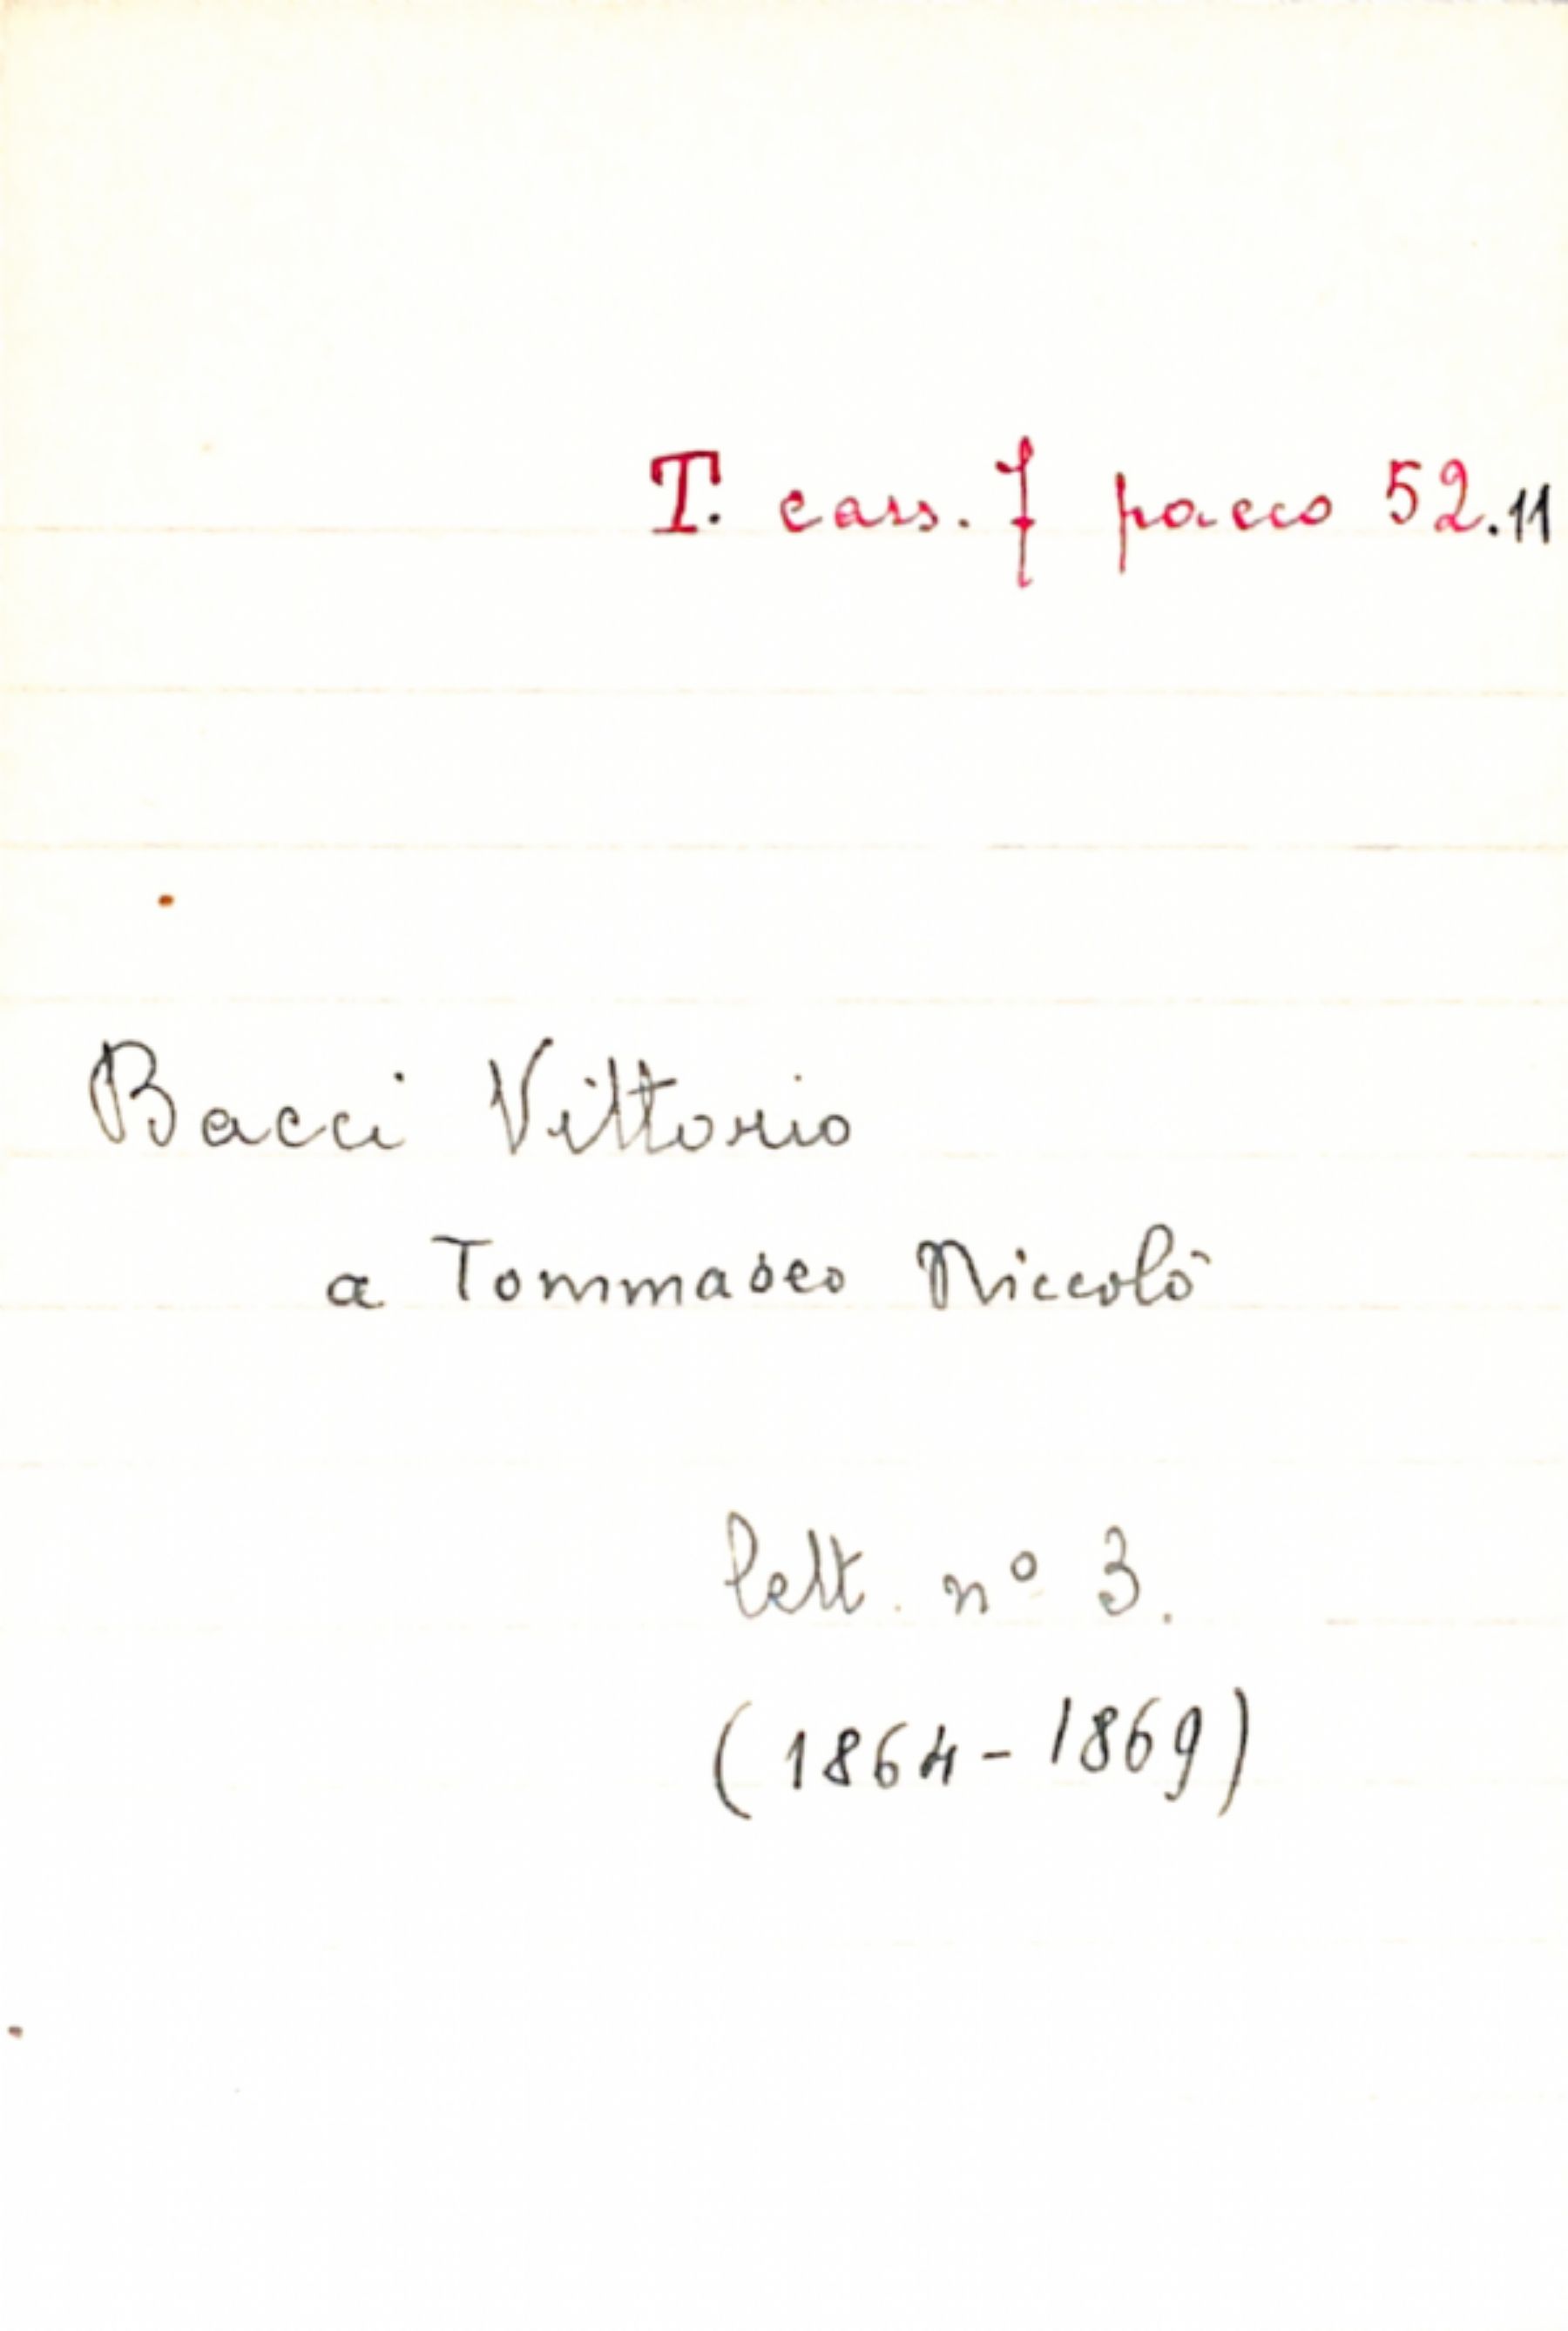 T. cass. 7 pacco 52.11
Bacci Vittorio
a Tommaseo Niccolò
lett. nº 3.
(1864-1869)